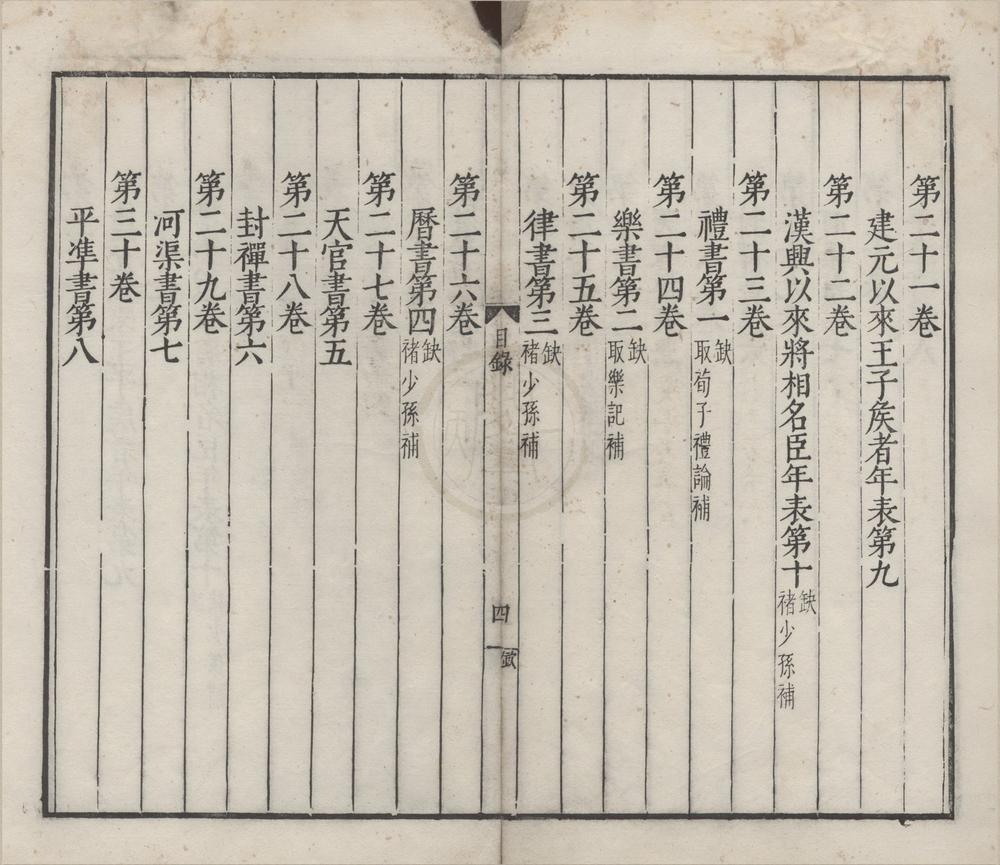 第二十一卷
建元以來王子矦者年表第九
第二十二卷
漢興以來將相名臣年表第十缺褚少孫補
第二十三卷
禮書第一缺取荀子禮論補
第二十四卷
樂書第二缺取樂記補
第二十五卷
律書第三缺褚少孫補
目錄
四
第二十六卷
曆書第四缺褚少孫補
第二十七卷
天官書第五
第二十八卷
封禪書第六
第二十九卷
河渠書第七
第三十卷
平準書第八